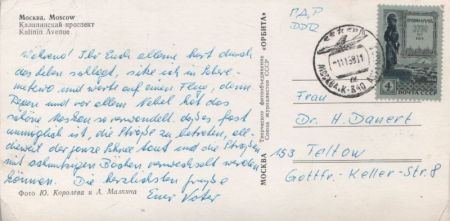 Москва. Moscow
Калининский проспект
Kalinin Avenue
Während Ihr Euch alleine hart durch
das Leben schlagt, sitze ich in Schere-
metiewo und warte auf einen Flug, denn
Regen und vor allem Nebel hat das
schöne Moskau so verwandelt, daß es fast
unmöglich ist, die Straße zu betreten, all-
dieweil der ganze Schnee taut und die Straßen
mit Bächen verwechselt werden
können. Die herzlichsten Grüße
Euer Vater
Фото Ю. Королева и А. Малкина
МОСКВА Творческо-фотообъединение «ОРБИТА»
Союза журналистов СССР
ГДР
DDR
МОСКВА, К-840
4
ПОЧТА
Frau
Dr. H. Dauert
153 Teltow
Gottfr.-Keller-Str. 8